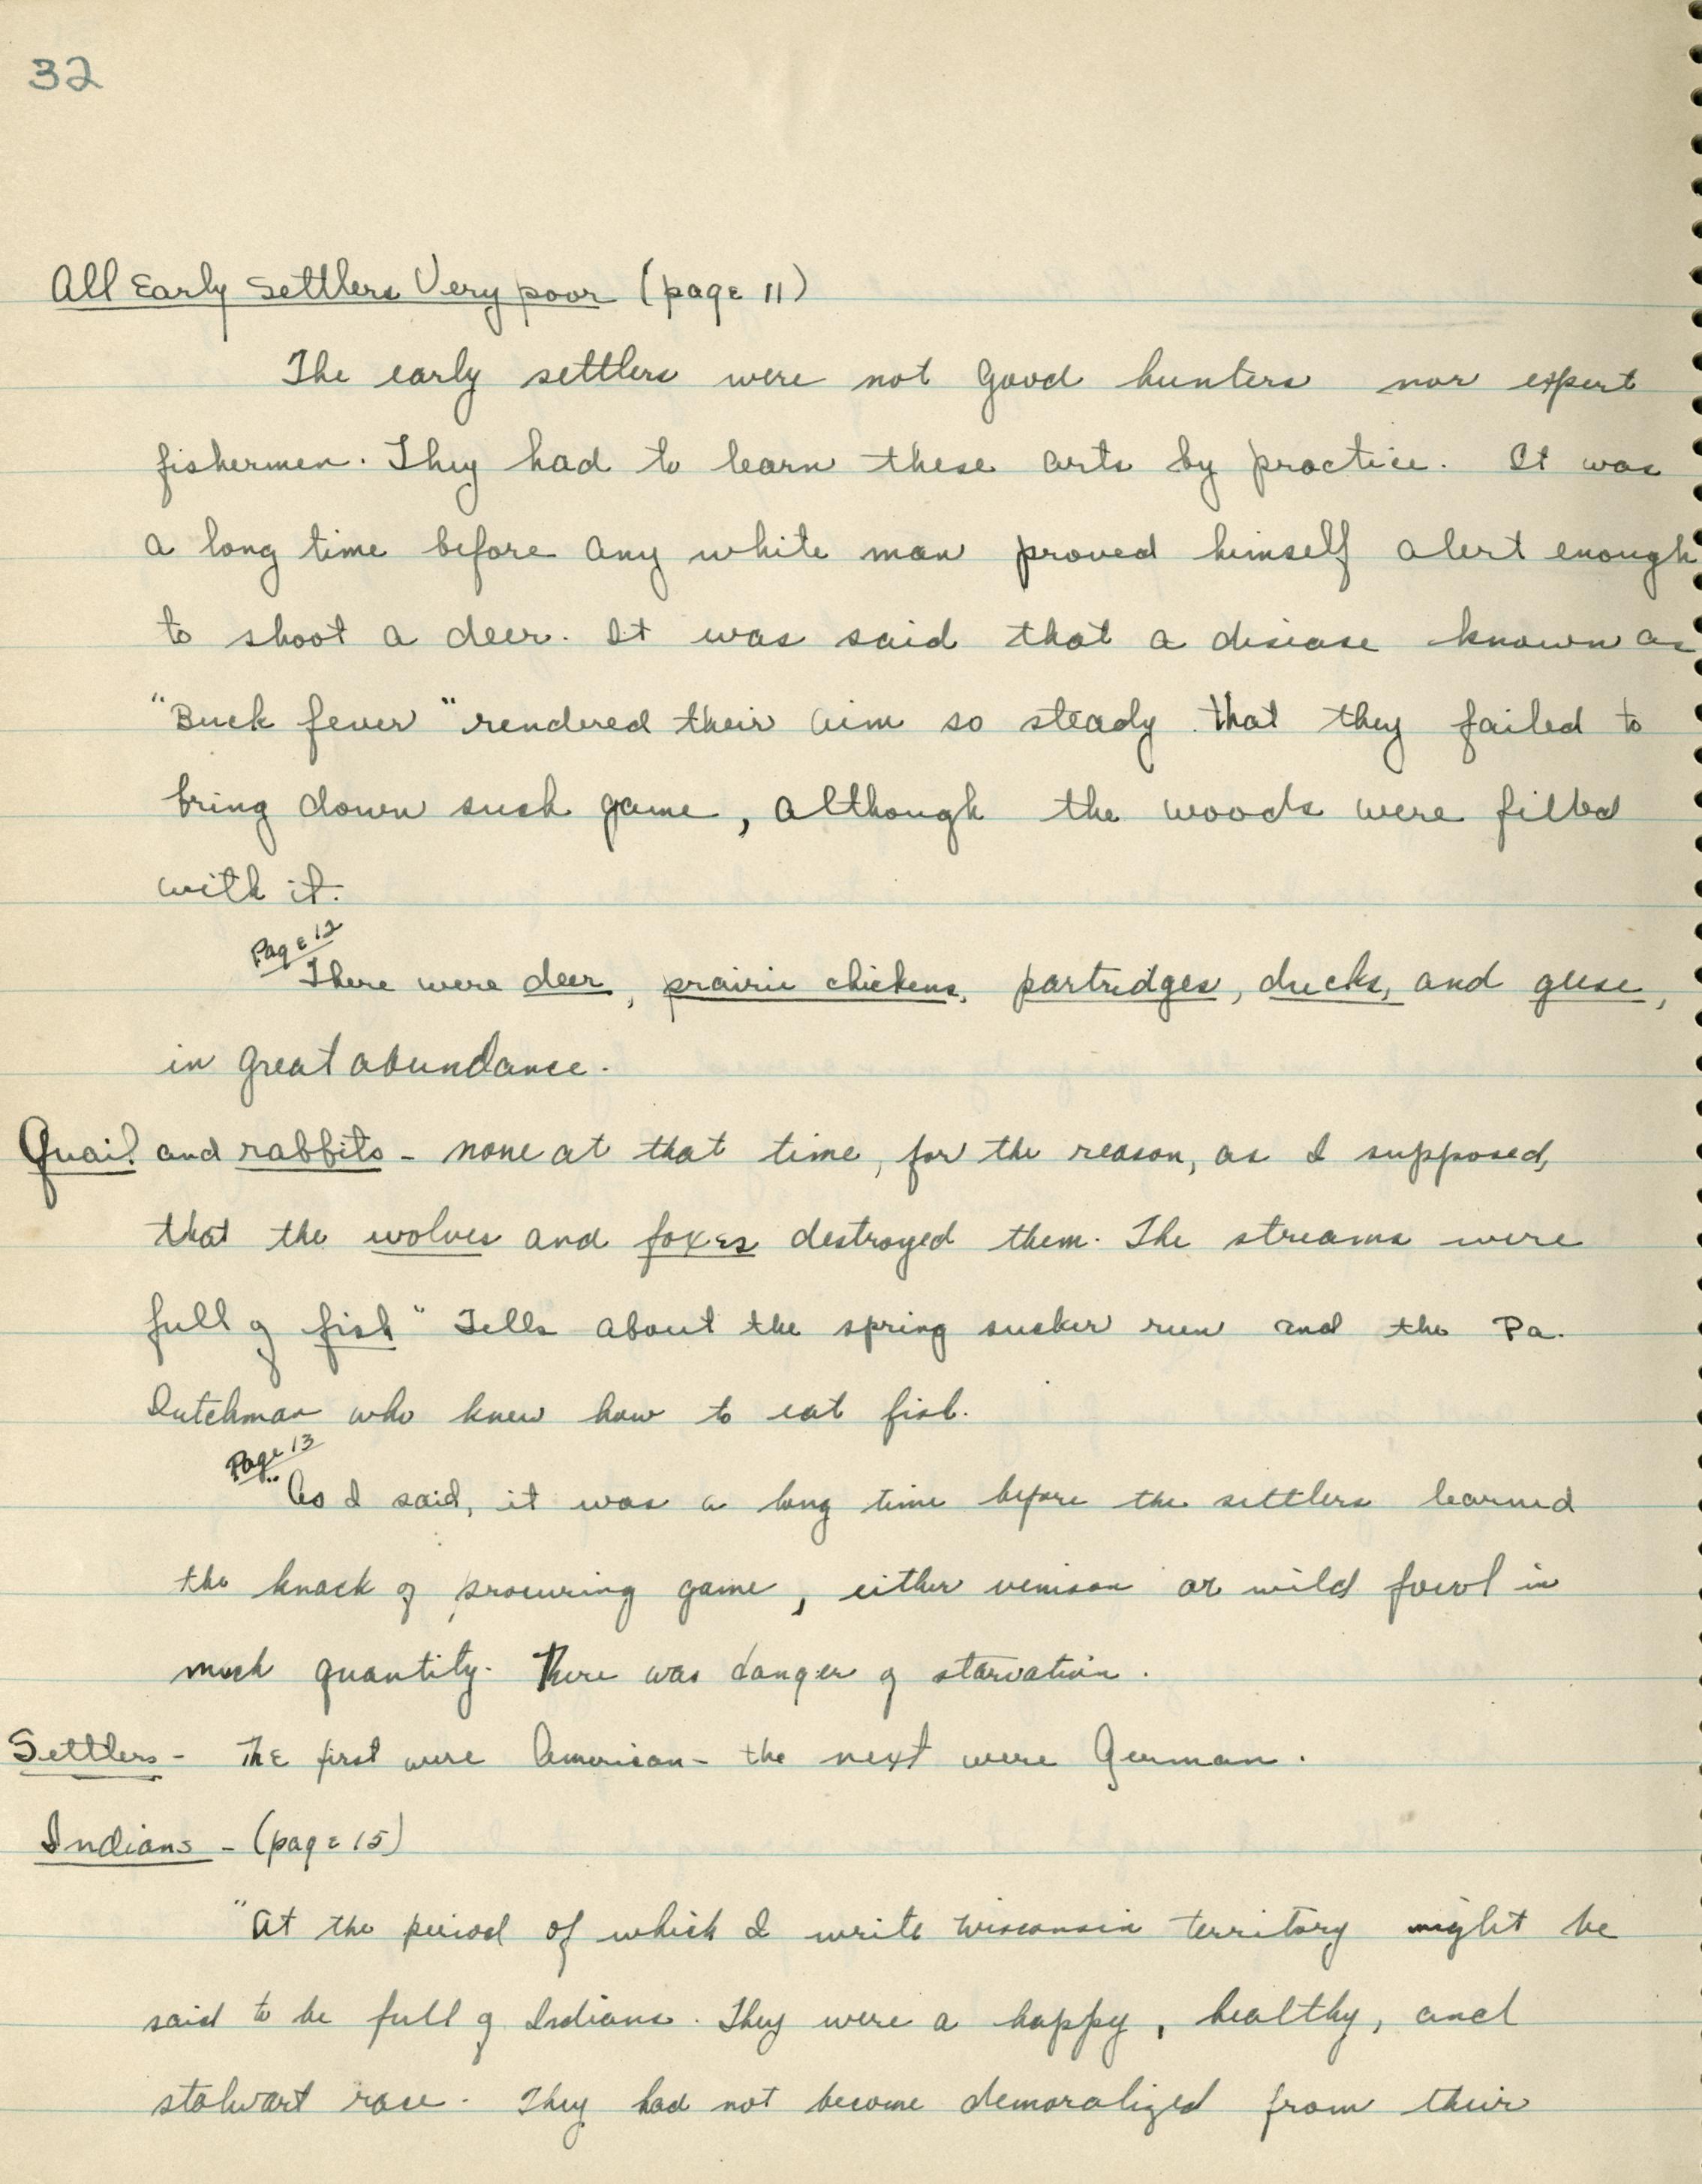 32
All Early Settlers Very poor (page 11)
The early settlers were not good hunters nor expert
fishermen. They had to learn these arts by practice. It was
a long time before any white man proved himself alert enough
to shoot a deer. It was said that a disease known as
"Buck fever" rendered their aim so steady that they failed to
bring down such game, although the woods were filled
with it.
Page 12
There were deer, prairie chickens, partridges, ducks, and geese,
in great abundance.
Quail and rabbits - none at that time, for the reason, as I supposed,
that the wolves and foxes destroyed them. The streams were
full of fish" Tells about the spring sucker run and the Pa.
Dutchman who knew how to eat fish.
Page 13
"As I said, it was a long time before the settlers learned
the knack of procuring game, either venison or wild fowl in
much quantity. There was danger of starvation.
Settlers - The first were American - the next were German.
Indians - (page 15)
"At the period of which I write Wisconsin territory might be
said to be full of Indians. They were a happy, healthy, and
stalwart race. They had not become demoralized from their